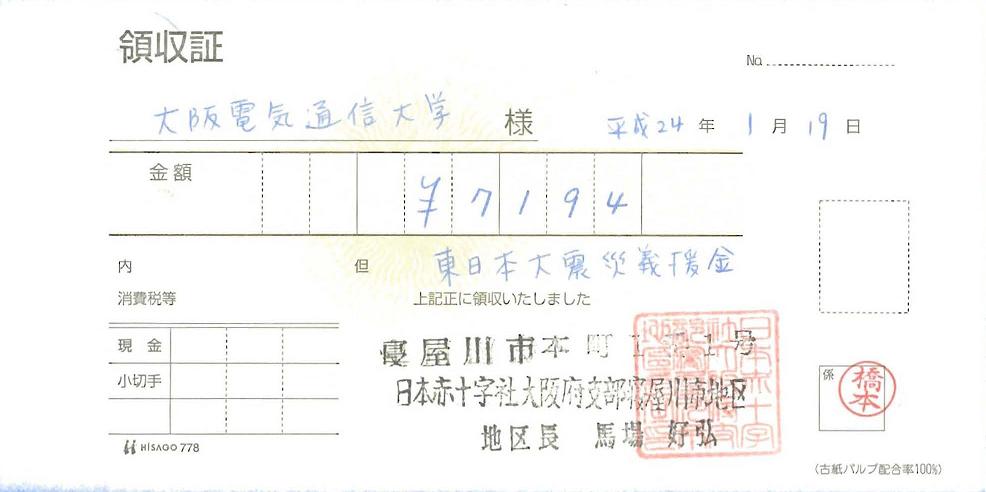 領収証
No.
大阪電気通信大学 様
平成24年 1月 19日
金額 ¥7194
内
但 東日本大震災義援金
消費税等
上記正に領収いたしました
現金
小切手
寝屋川市本町1番1号
日本赤十字社大阪府支部寝屋川市地区
地区長 馬場 好弘
係
橋本
HISAGO 778
(古紙パルプ配合率100%)